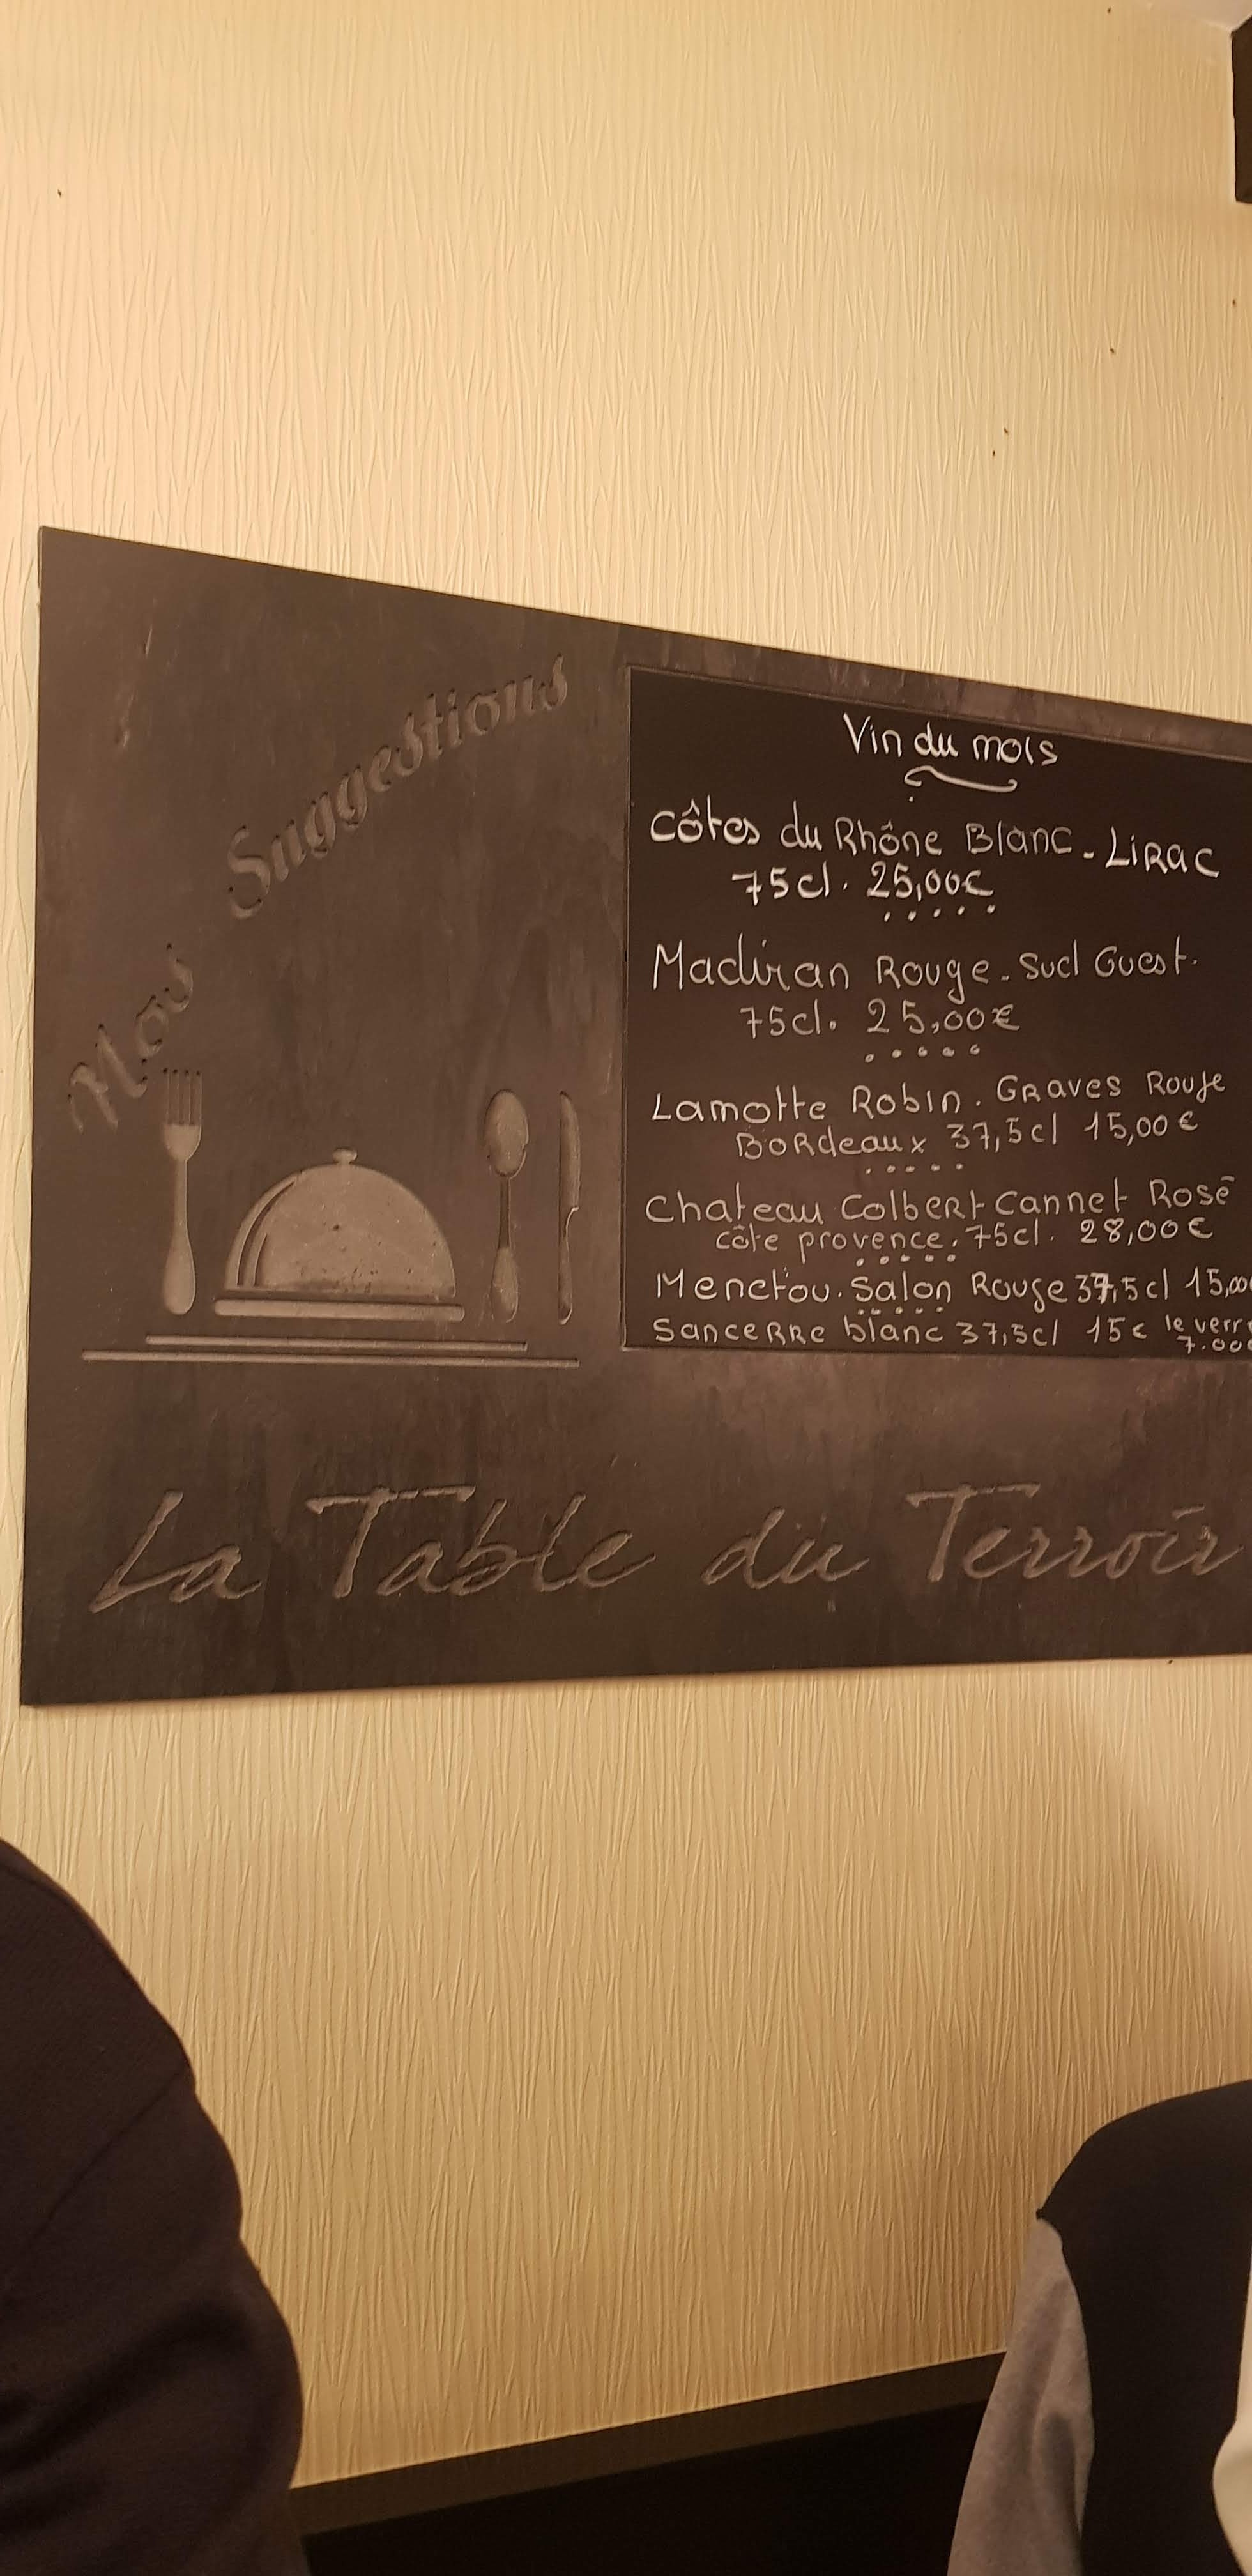 Nos Suggestions
Vin du mois
Côtes du Rhône Blanc - Lirac
75cl. 25,00€
Madiran Rouge - Sud Ouest.
75cl. 25,00€
Lamotte Robin. Graves Rouge
Bordeaux 37,5cl 15,00€
Chateau Colbert Cannet Rosé
côte provence. 75cl. 28,00€
Menetou. Salon Rouge 37,5cl 15,00
Sancerre blanc 37,5cl 15€ le verre
7.00€
La Table du Terroir